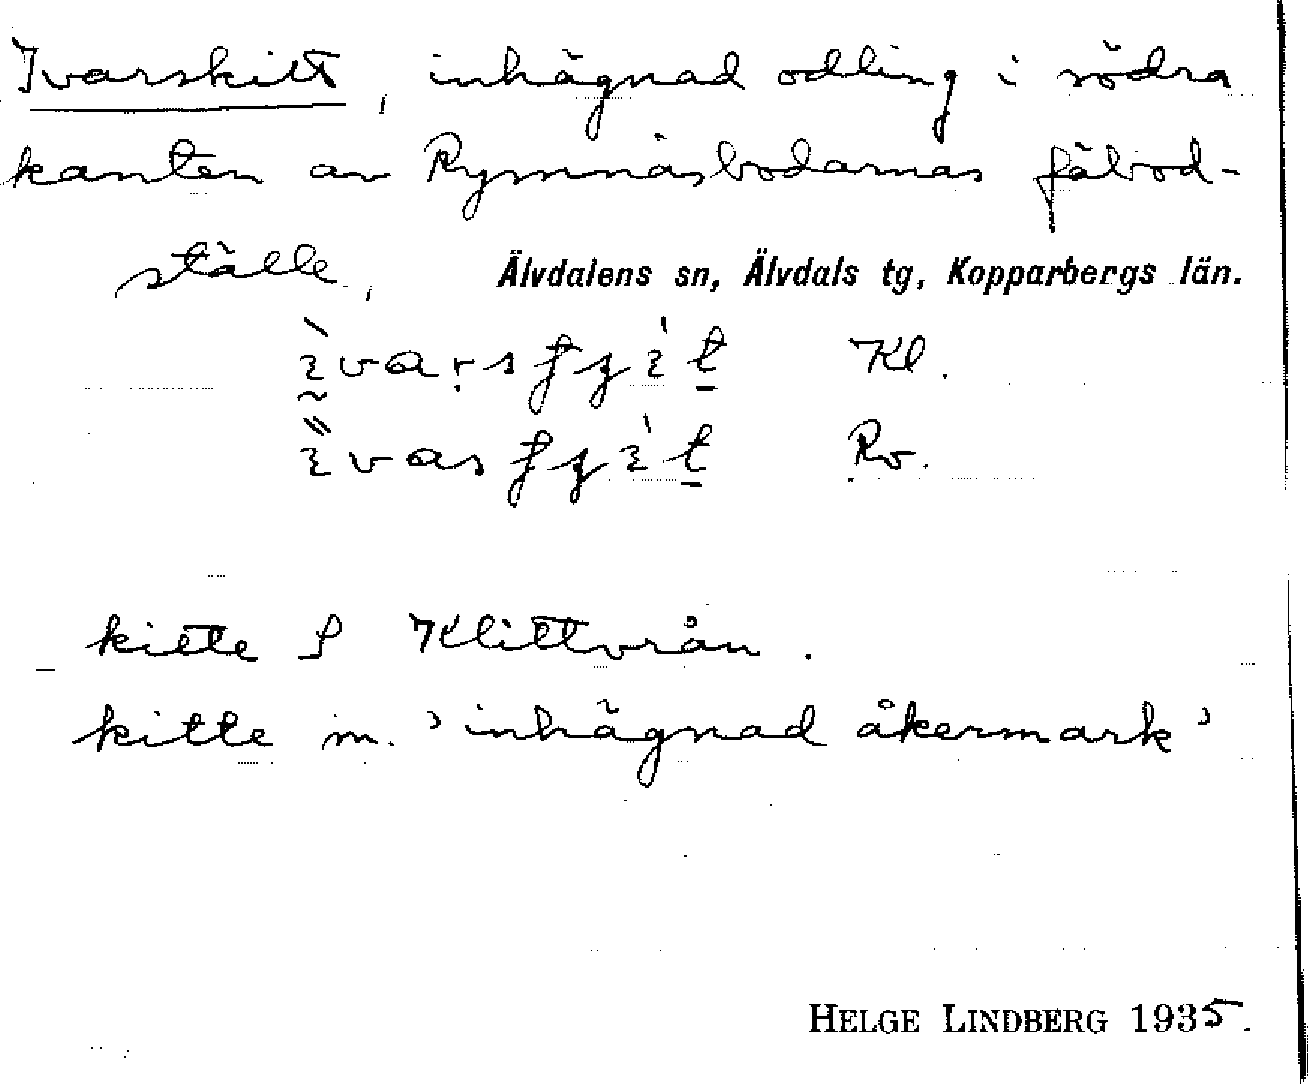 Ivarskitt, inhägnad odling i södra
kanten av Rymnäsbodarnas fäbod-
ställe, Älvdalens sn, Älvdals tg, Kopparbergs län.
Kl.
Rv.
kitte f Klittvrån.
kitte m. 'inhägnad åkermark'
HELGE LINDBERG 1935.